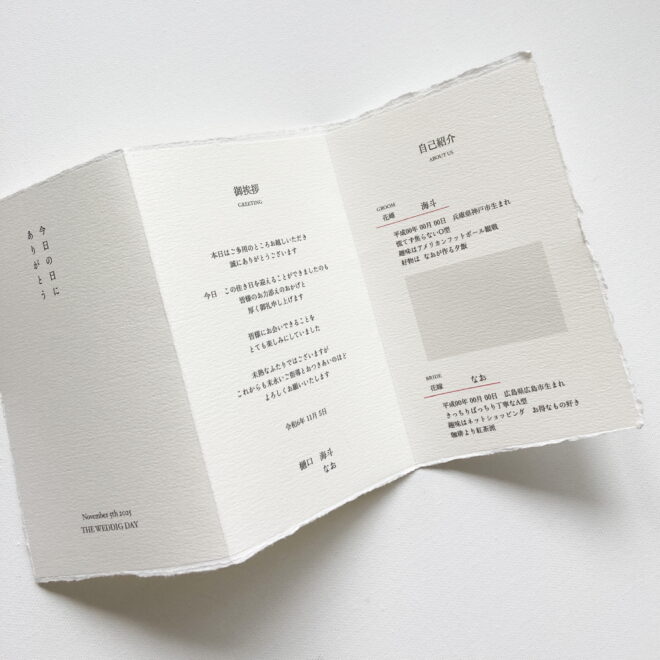 今日の日に
ありがとう
November 5th 2025
THE WEDDIG DAY
御挨拶
GREETING
本日はご多用のところお越しいただき
誠にありがとうございます
今日　この佳き日を迎えることができましたのも
皆様のお力添えのおかげと
厚く御礼申し上げます
皆様にお会いできることを
とても楽しみにしていました
未熟なふたりではございますが
これからも末永いご指導とおつきあいのほど
よろしくお願いいたします
令和6年 11月 5日
樋口　海斗
なお
自己紹介
ABOUT US
GROOM
花婿　海斗
平成00年 00月 00日　兵庫県神戸市生まれ
慌てず焦らないO型
趣味はアメリカンフットボール観戦
好物は なおが作る夕飯
BRIDE
花嫁　なお
平成00年 00月 00日　広島県広島市生まれ
きっちりばっちり丁寧なA型
趣味はネットショッピング　お得なもの好き
珈琲より紅茶派